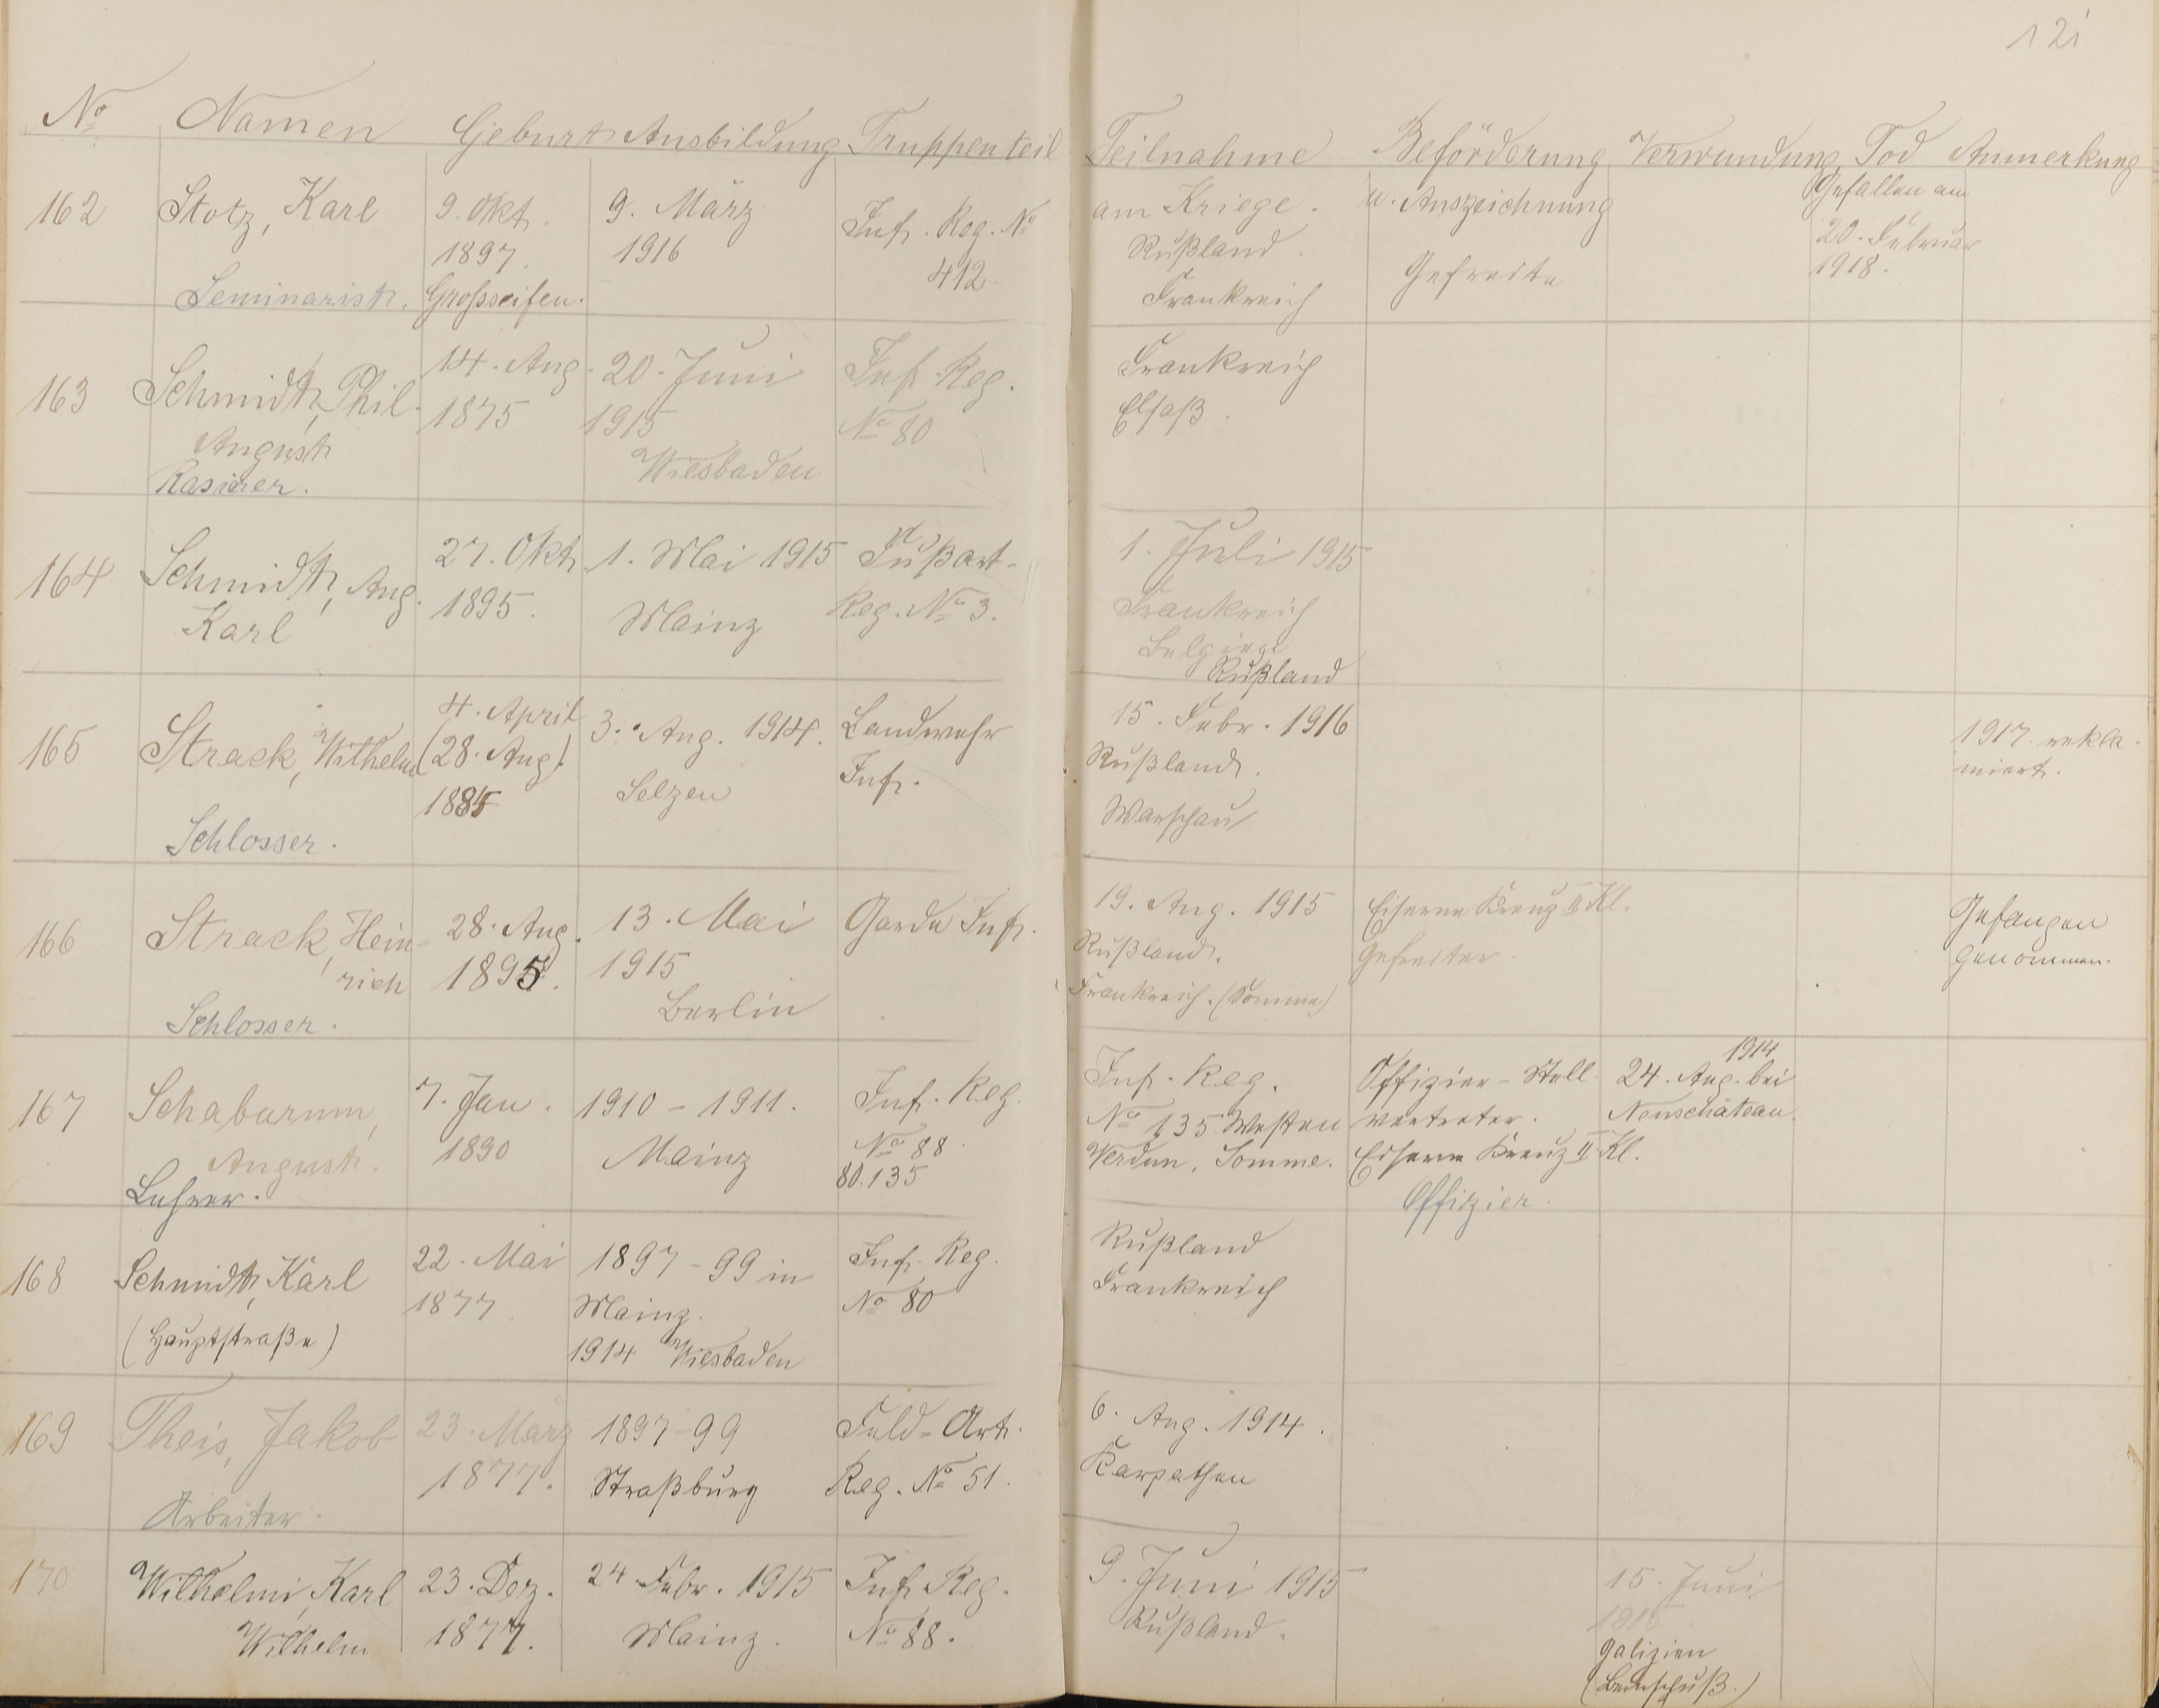 121
No Namen Geburt Ausbildung Truppenteil Teilnahme Beförderung Verwundung Tod Anmerkung
am Kriege. u. Auszeichnung
162 Stotz, Karl 9. Okt. 9. März Inf. Reg. No Rußland. Gefreite Gefallen am
1897. 1916 412. Frankreich 20. Februar
Seminarist. Grossseifen. 1918.
163 Schmidt, Phil. 14. Aug. 20. Juni Inf. Reg. Frankreich
August 1875 1915 No 80 Elsaß.
Kasierer. Wiesbaden
164 Schmidt, Aug. 27. Okt. 1. Mai 1915 Fußart- 1. Juli 1915
Karl 1895. Mainz Reg. No 3. Frankreich
Belgien
Rußland
165 Strack, Wilhelm 4. April 3. Aug. 1914. Landwehr 15. Febr. 1916 1917. rekla-
(28. Aug) Selzen Inf. Rußland. miert.
1885 Warschau
Schlosser.
166 Strack, Hein- 28. Aug. 13. Mai Garde Inf. 19. Aug. 1915 Eiserne Kreuz II Kl. Gefangen
rich 1895. 1915 Rußland. Gefreiter. genommen.
Schlosser. Berlin Frankreich. (Somme)
167 Schabarum, 7. Jan. 1910 - 1911. Inf. Reg. Inf. Reg. Offizier-Stell- 24. Aug. bei 1914
August. 1890 Mainz No 88. No 135 Westen vertreter. Neuschâteau.
Lehrer. 80. 135 Verdun, Somme. Eiserne Kreuz II Kl.
Offizier.
168 Schmidt, Karl 22. Mai 1897 - 99 in Inf. Reg. Rußland
(Hauptstraße) 1877 Mainz. No 80 Frankreich
1914 Wiesbaden
169 Theis, Jakob 23. März 1897-99 Feld-Art. 6. Aug. 1914.
1877. Straßburg Reg. No 51. Karpathen
Arbeiter.
170 Wilhelmi, Karl 23. Dez. 24. Febr. 1915 Inf. Reg. 9. Juni 1915 15. Juni
Wilhelm 1877. Mainz. No 88. Rußland. 1915
Galizien
(Beinschuß.)